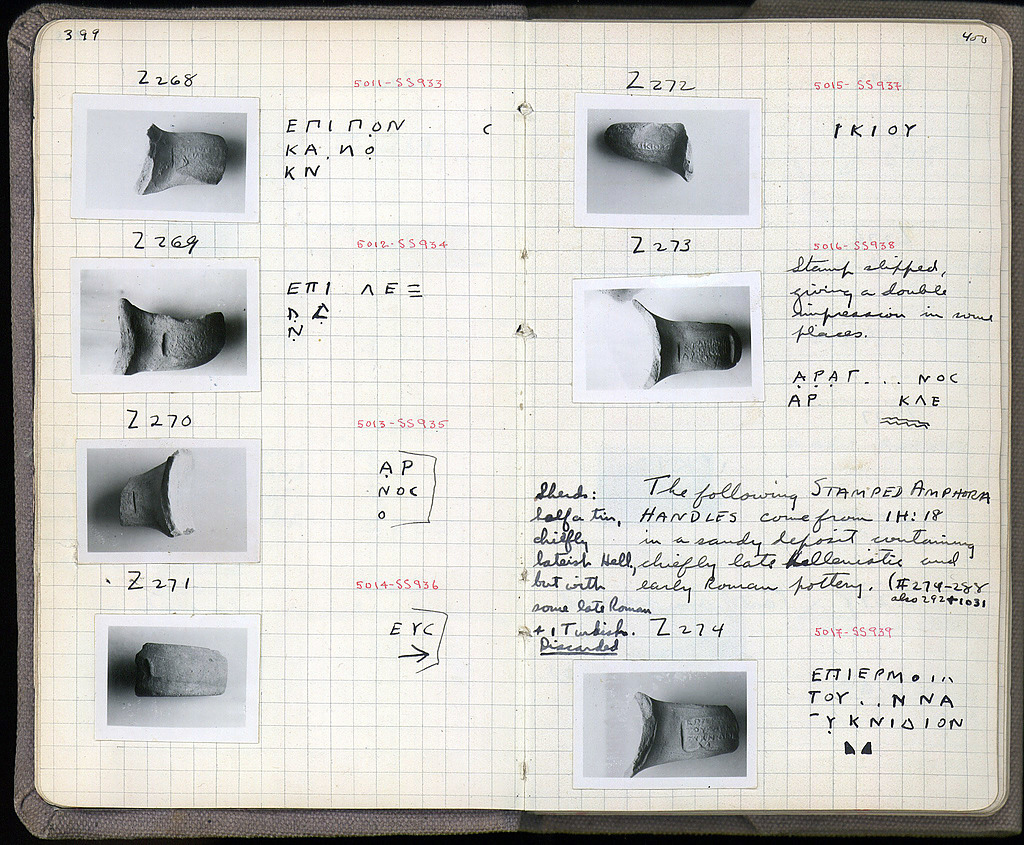 399
Z 268
5011-SS933
ΕΠΙ ΠΟΝ C
ΚΑ . ΝΟ
ΚΝ
Z 269
5012-SS934
ΕΠΙ ΛΕΞ
Ν
Z 270
5013-SS935
ΑΡ
ΝΟC
Ο
Z 271
5014-SS936
ΕΥC
→
400
Z 272
5015-SS937
ΙΚΙΟΥ
Z 273
5016-SS938
Stamp slipped,
giving a double
impression in some
places.
ΑΡΑΓ... ΝΟC
ΑΡ ΚΛΕ
Sherds:
half a tin,
chiefly
lateish Hell,
but with
some late Roman
+ 1 Turkish.
Discarded
The following STAMPED AMPHORA
HANDLES come from 1H:18
in a sandy deposit containing
chiefly late hellenistic and
early Roman pottery. (#274-288
also 292+1031
Z 274
5017-SS939
ΕΠΙΕΡΜΟ
ΤΟΥ..ΝΝΑ
Υ ΚΝΙΔΙΟΝ